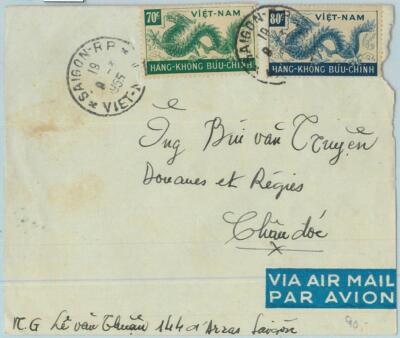 70c
VIÊT-NAM
HANG-KHÔNG BUU-CHINH
80c
VIÊT-NAM
HANG-KHÔNG BUU-CHINH
SAIGON-R.P
19
8
1955
VIET-
Ông Bùi văn Truyện
Douanes et Régies
Châu đốc
VIA AIR MAIL
PAR AVION
N.G Lê văn Thuận 144 d'Arras Saigon
90,-